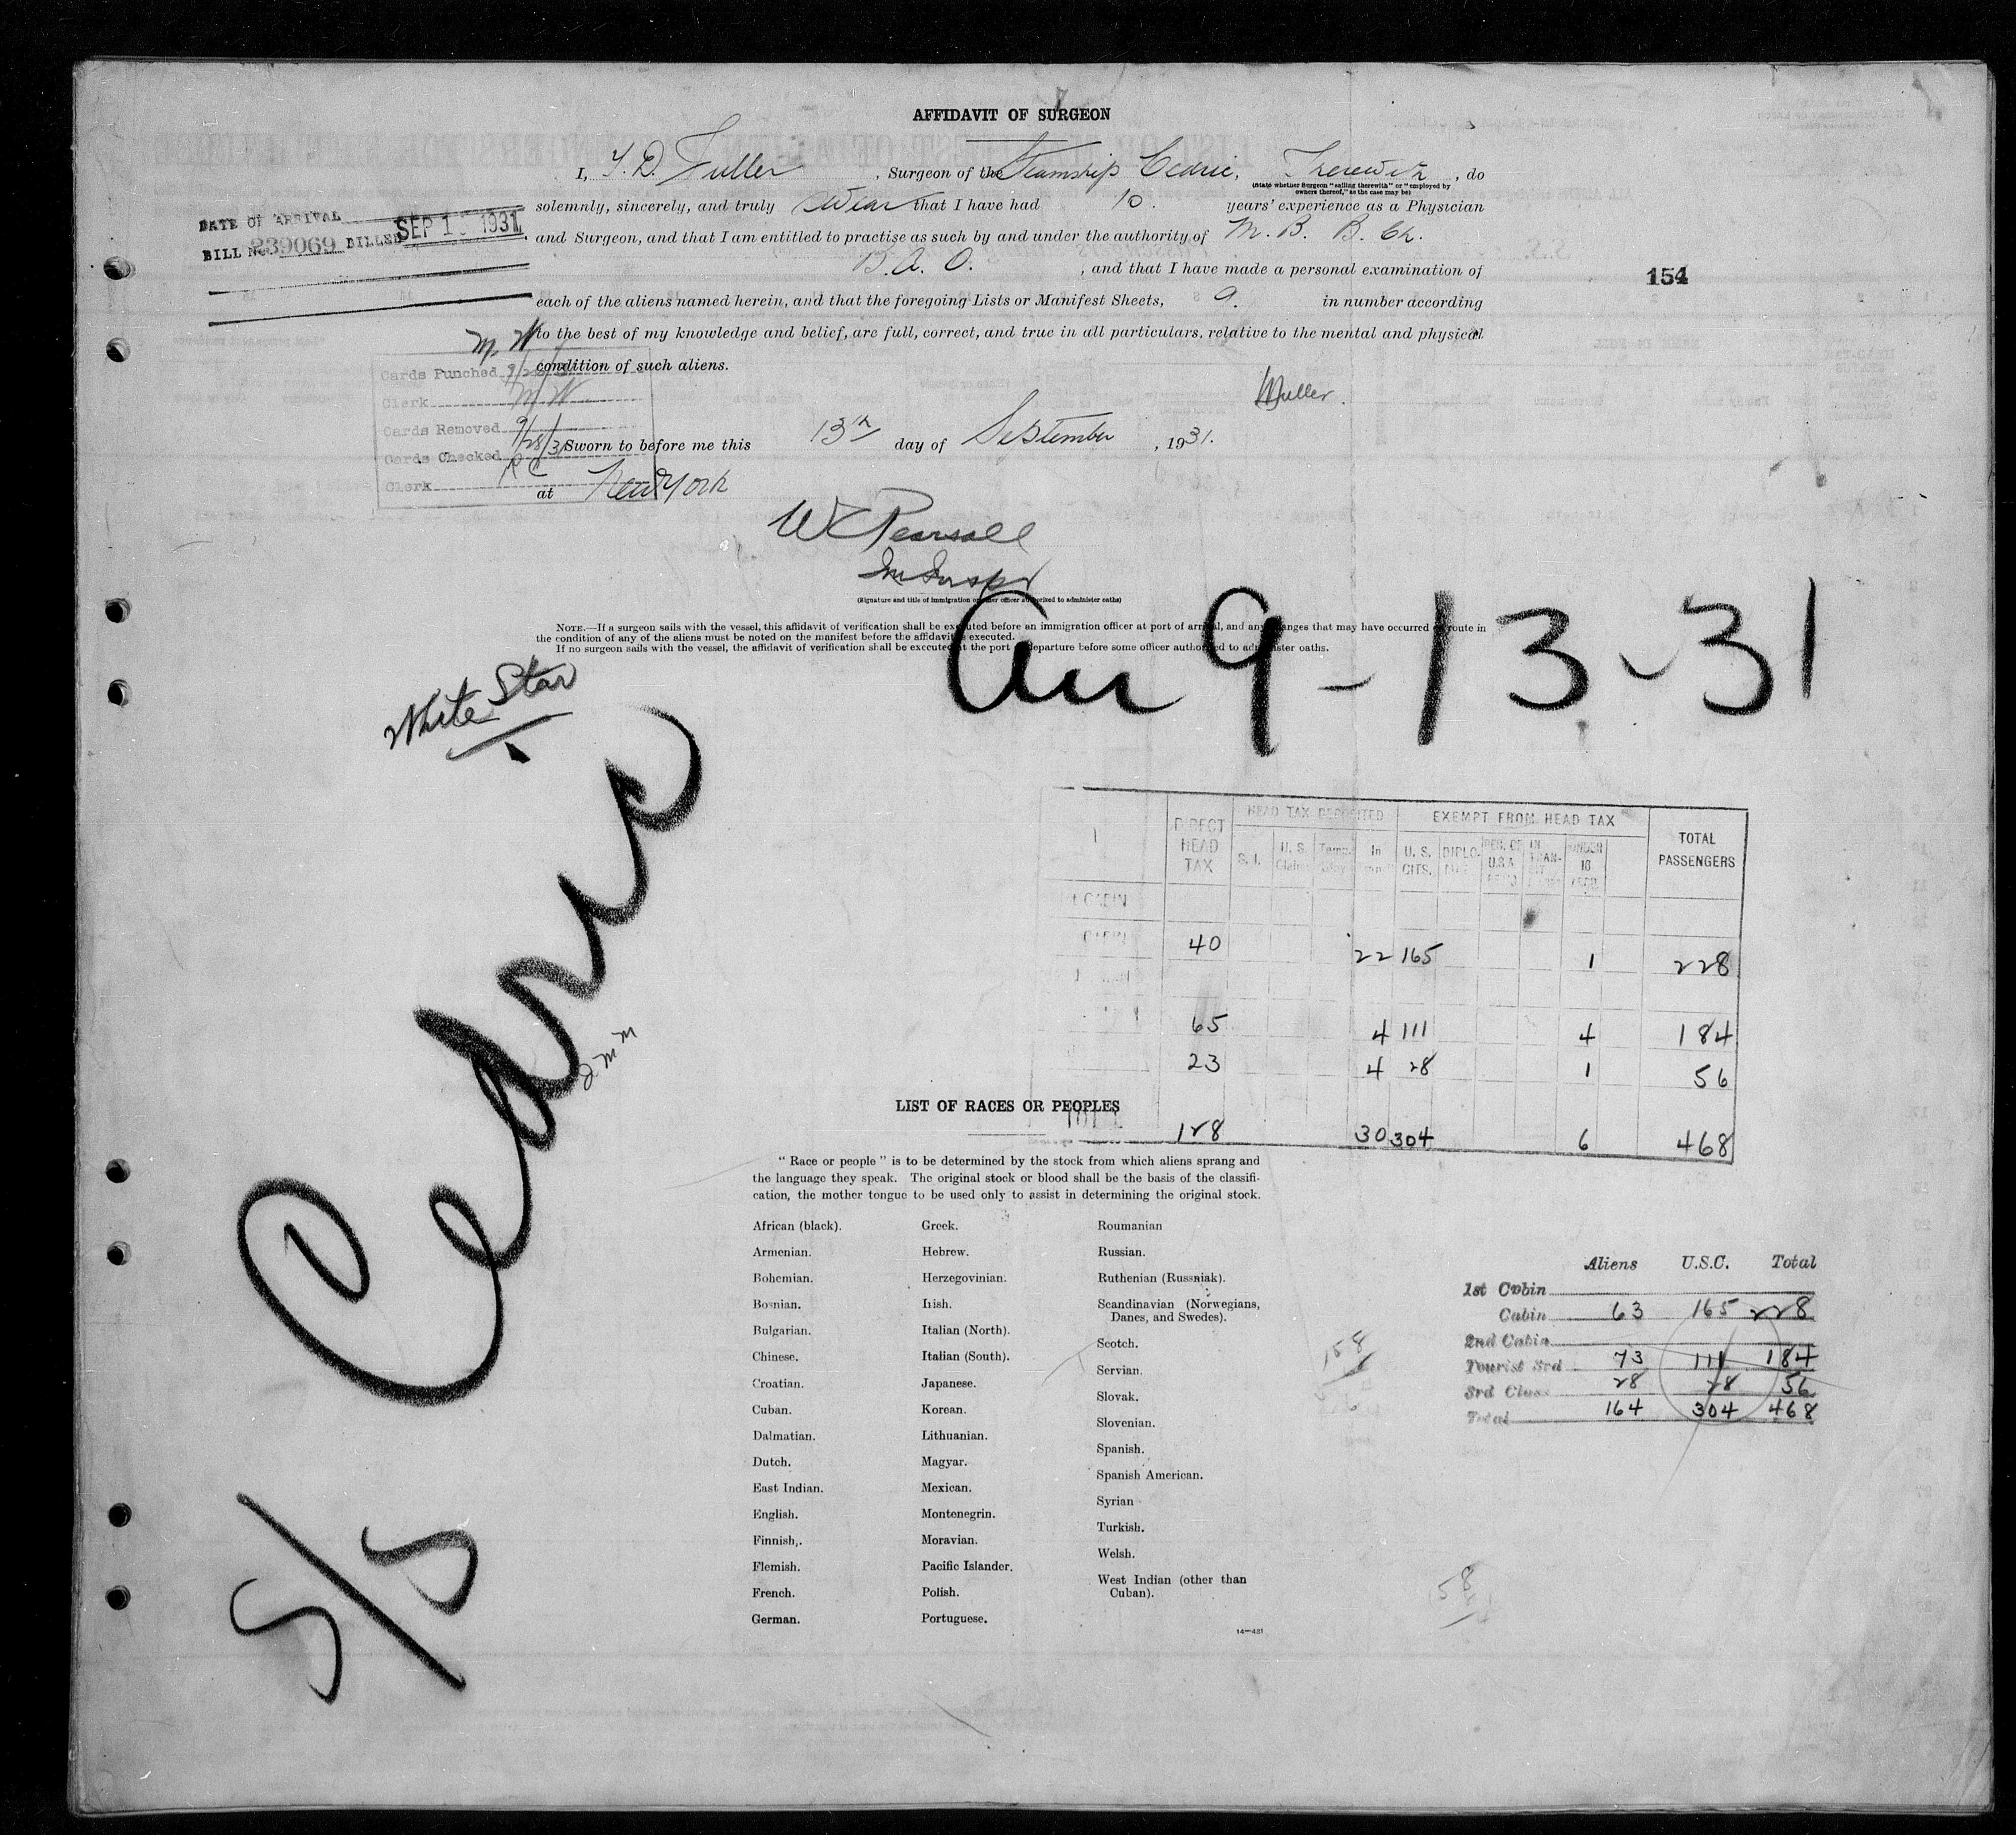 AFFIDAVIT OF SURGEON
I, T. D. Fuller, Surgeon of the Steamship Cedric, Therewith, do
(State whether Surgeon "sailing therewith" or "employed by
owners thereof," as the case may be)
solemnly, sincerely, and truly swear that I have had 10. years' experience as a Physician
DATE OF ARRIVAL
BILL No. 239069 BILLED SEP 1 1931
and Surgeon, and that I am entitled to practise as such by and under the authority of M. B. B. Ch.
B. A. O. , and that I have made a personal examination of
154
each of the aliens named herein, and that the foregoing Lists or Manifest Sheets, 9. in number according
to the best of my knowledge and belief, are full, correct, and true in all particulars, relative to the mental and physical
condition of such aliens.
M W
Cards Punched
Clerk M W
Cards Removed
Cards Checked 9/28/31
Clerk
Fuller.
Sworn to before me this 13th day of September, 1931.
at New York
W C Pearsall
Im Inspr
(Signature and title of immigration or other officer authorized to administer oaths)
NOTE.—If a surgeon sails with the vessel, this affidavit of verification shall be executed before an immigration officer at port of arrival, and any changes that may have occurred en route in
the condition of any of the aliens must be noted on the manifest before the affidavit is executed.
If no surgeon sails with the vessel, the affidavit of verification shall be executed at the port of departure before some officer authorized to administer oaths.
9-13-31
White Star
S/S Cedric
DIRECT HEAD TAX
HEAD TAX DEPOSITED
EXEMPT FROM HEAD TAX
TOTAL PASSENGERS
S. I. U. S. In U. S. CITS. DIPLO- U.S.A. IN TRAN- UNDER 16
CABIN
40 22 165 1 228
65 4 111 4 184
23 4 28 1 56
128 30 304 6 468
LIST OF RACES OR PEOPLES
"Race or people" is to be determined by the stock from which aliens sprang and
the language they speak. The original stock or blood shall be the basis of the classifi-
cation, the mother tongue to be used only to assist in determining the original stock.
African (black).
Armenian.
Bohemian.
Bosnian.
Bulgarian.
Chinese.
Croatian.
Cuban.
Dalmatian.
Dutch.
East Indian.
English.
Finnish,.
Flemish.
French.
German.
Greek.
Hebrew.
Herzegovinian.
Irish.
Italian (North).
Italian (South).
Japanese.
Korean.
Lithuanian.
Magyar.
Mexican.
Montenegrin.
Moravian.
Pacific Islander.
Polish.
Portuguese.
Roumanian
Russian.
Ruthenian (Russniak).
Scandinavian (Norwegians,
Danes, and Swedes).
Scotch.
Servian.
Slovak.
Slovenian.
Spanish.
Spanish American.
Syrian
Turkish.
Welsh.
West Indian (other than
Cuban).
14—431
Aliens U.S.C. Total
1st Cabin
Cabin 63 165 228
2nd Cabin
Tourist 3rd 73 111 184
3rd Class 28 28 56
Total 164 304 468
158
58